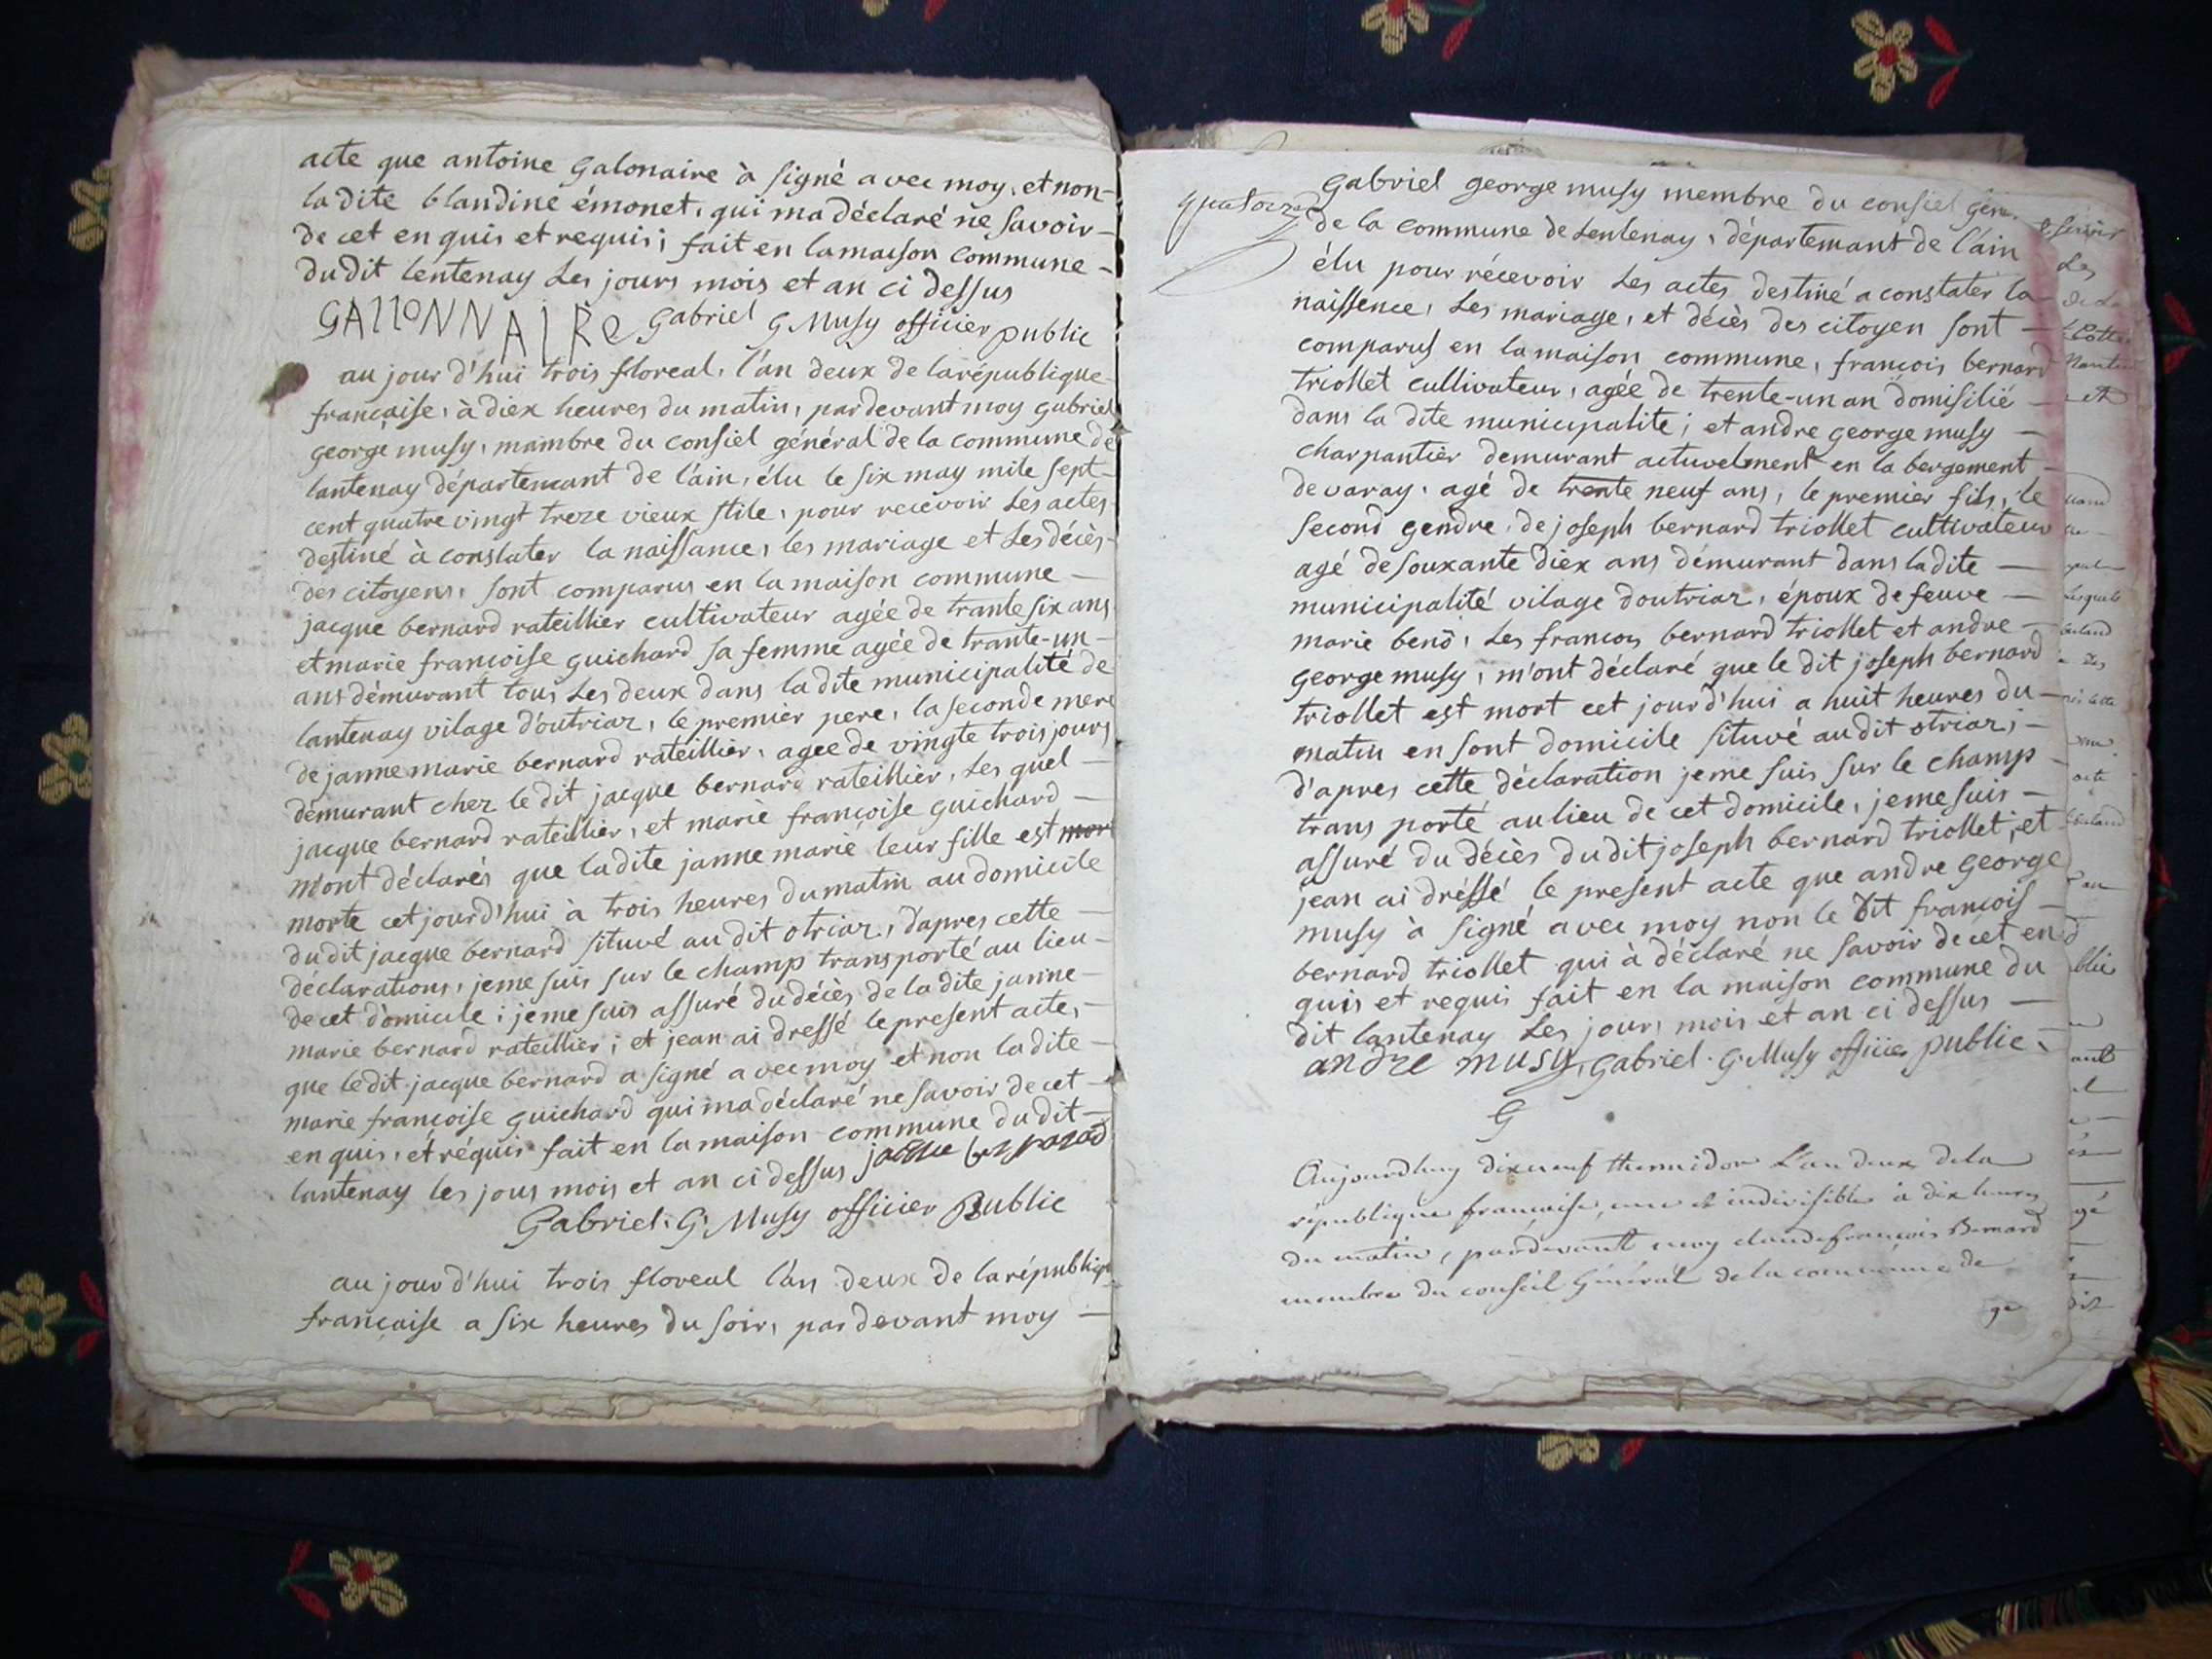 acte que antoine Galonaire à signé avec moy, et non-
la dite blandine émonet, qui ma déclaré ne savoir-
de cet en quis et requis; fait en la maison commune-
du dit lentenay Les jours mois et an ci dessus
GAllONNAIRe Gabriel G Musy officier public
au jour d'hui trois floreal, l'an deux de la république
francaise, à diex heures du matin, par devant moy gabriel
george musy, mambre du consiel général de la commune de
lantenay départemant de l'ain, élu le six may mile sept-
cent quatre vingt treze vieux stile, pour recevoir Les actes
destiné à constater la naissance, les mariage et Les décès-
des citoyens, sont comparus en la maison commune-
jacque bernard rateillier cultivateur agée de trante six ans
et marie françoise guichard sa femme agée de trante-un-
ans démurant tous Les deux dans la dite municipalité de
lantenay vilage d'outriaz, le premier pere, la seconde mere
de janne marie bernard rateillier, agee de vingte trois jours
démurant chez le dit jacque bernard rateillier, Les quel-
jacque bernard rateillier, et marie françoise guichard-
m'ont déclarés que ladite janne marie leur fille est mor
morte cet jourd'hui à trois heures du matin au domicile
du dit jacque bernard situvé au dit otriaz, d'apres cette-
déclarations, jeme suis sur le champ transporté au lieu-
de cet domicile; jeme suis assuré du décès de la dite janne-
marie bernard rateillier; et jean ai dressé le present acte,-
que le dit jacque bernard a signé avec moy et non la dite-
marie françoise guichard qui ma déclaré ne savoir de cet-
en quis, et réquis fait en la maison commune du dit-
lantenay les jous mois et an ci dessus jacque bernard
Gabriel. G. Musy officier Public
au jour d'hui trois floreal l'an deux de la républiq
francaise a six heures du soir, par devant moy-
quatorze
Gabriel george musy membre du consiel géné
de la commune de Lentenay, départemant de l'ain
élu pour récevoir Les actes destiné a constater la-
naissence, Les mariage, et décès des citoyen sont-
comparus en la maison commune, françois bernard
triollet cultivateur, agée de trente-un an domisilié-
dans la dite municipalité; et andre george musy-
charpantier demurant actuvelment en la bergement-
de varay, agé de trente neuf ans, le premier fils, le
second gendre, de joseph bernard triollet cultivateur
agé de souxante diex ans démurant dans la dite-
municipalité vilage doutriaz, époux de feuve-
marie benô, Les françoy bernard triollet et andre-
george musy, m'ont déclaré que le dit joseph bernard
triollet est mort cet jourd'hui a huit heures du-
matin en sont domicile situvé au dit otriaz;-
d'apres cette déclaration jeme suis sur le champ-
trans porté au lieu de cet domicile, jeme suis-
assuré du décès du dit joseph bernard triollet; et-
jean ai dréssé le present acte que andre george
musy à signé avec moy non le dit françois-
bernard triollet qui à déclaré ne savoir de cet en
quis et requis fait en la maison commune du
dit lantenay Les jours mois et an ci dessus-
andre musy, Gabriel. G. Musy officier public.
G
Aujourdhuy dixneuf thermidor L'an deux de la
république francaise, une et indivisible à dix heures
du matin, pardevant moy claude françois Bernard
membre du conseil Général de la commune de